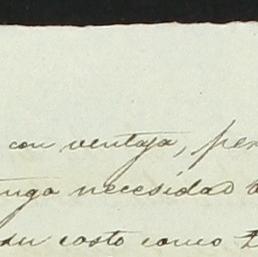 con ventaja, per
tenga necesidad d
su costo como